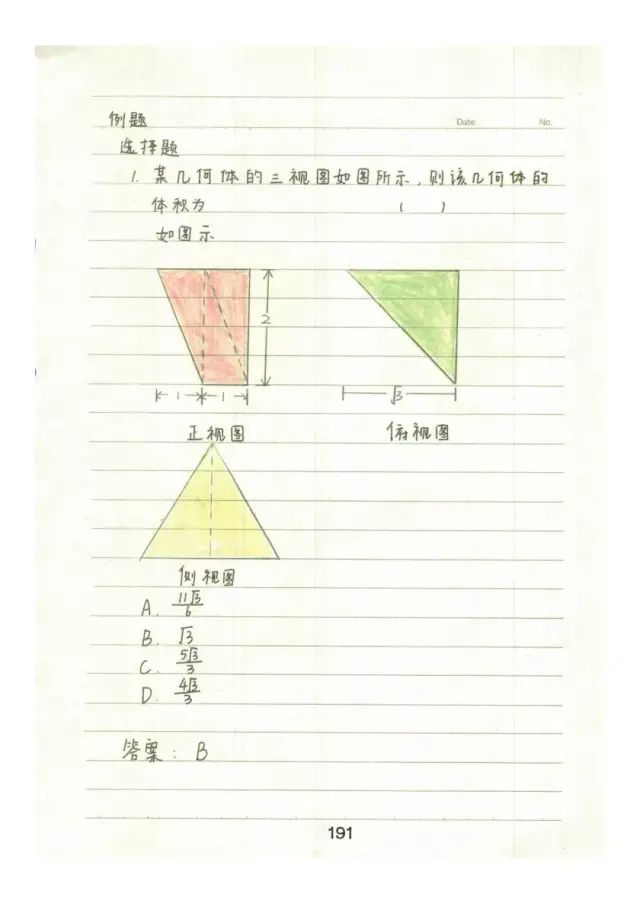 Date No.
例题
选择题
1. 某几何体的三视图如图所示，则该几何体的
体积为 ( )
如图示
2
1 1
√3
正视图 俯视图
侧视图
A. 11√3/6
B. √3
C. 5√3/3
D. 4√3/3
答案： B
191